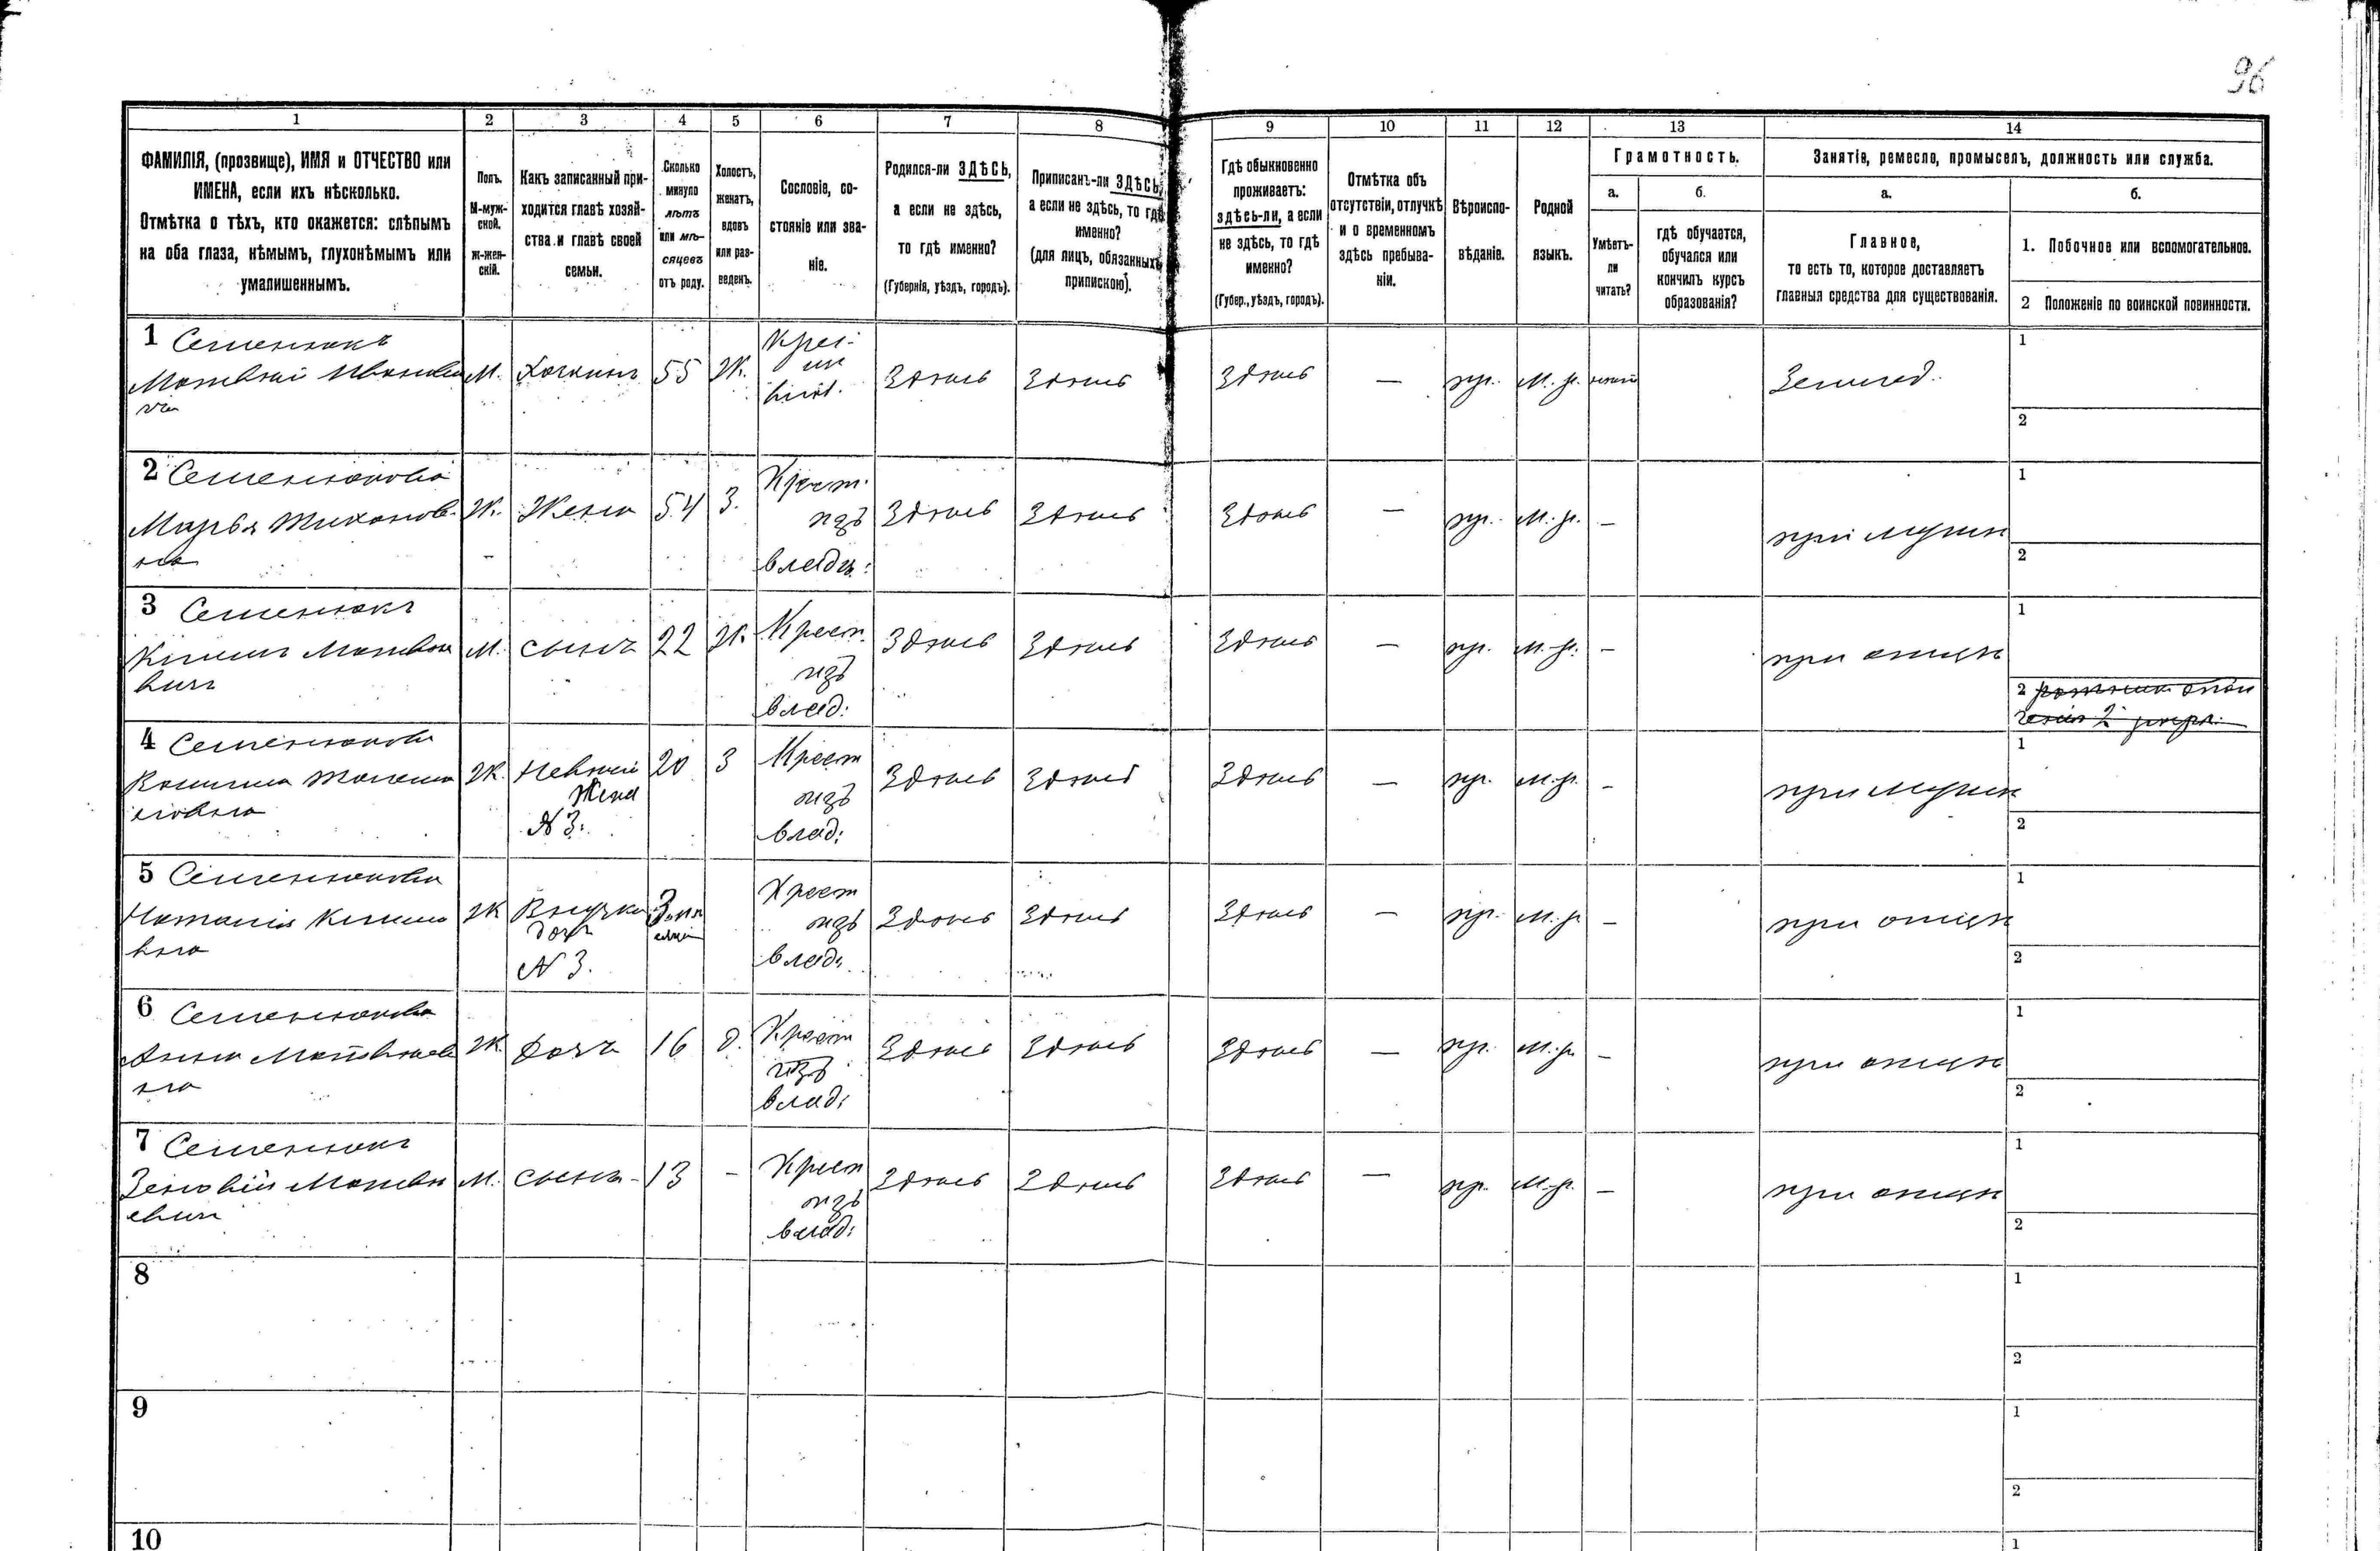 96
1 2 3 4 5 6 7 8 9 10 11 12 13 14
ФАМИЛІЯ, (прозвище), ИМЯ и ОТЧЕСТВО или
ИМЕНА, если ихъ нѣсколько.
Отмѣтка о тѣхъ, кто окажется: слѣпымъ
на оба глаза, нѣмымъ, глухонѣмымъ или
умалишеннымъ.
Полъ.
М-муж-
ской.
Ж-жен-
скій.
Какъ записанный при-
ходится главѣ хозяй-
ства и главѣ своей
семьи.
Сколько
минуло
лѣтъ
или мѣ-
сяцевъ
отъ роду.
Холостъ,
женатъ,
вдовъ
или раз-
веденъ.
Сословіе, со-
стояніе или зва-
ніе.
Родился-ли ЗДѢСЬ,
а если не здѣсь,
то гдѣ именно?
(Губернія, уѣздъ, городъ).
Приписанъ-ли ЗДѢСЬ,
а если не здѣсь, то гдѣ
именно?
(для лицъ, обязанныхъ
припискою).
Гдѣ обыкновенно
проживаетъ:
здѣсь-ли, а если
не здѣсь, то гдѣ
именно?
(Губер., уѣздъ, городъ).
Отмѣтка объ
отсутствіи, отлучкѣ
и о временномъ
здѣсь пребыва-
ніи.
Вѣроиспо-
вѣданіе.
Родной
языкъ.
Грамотность.
а.
Умѣетъ-
ли
читать?
б.
гдѣ обучается,
обучался или
кончилъ курсъ
образованія?
Занятія, ремесло, промыселъ, должность или служба.
а.
Главное,
то есть то, которое доставляетъ
главныя средства для существованія.
б.
1. Побочное или вспомогательное.
2 Положеніе по воинской повинности.
1 Семенюкъ
Матвѣй Иванови
чъ
М. Хозяинъ 55 Ж.
Крес.
Здѣсь Здѣсь Здѣсь — пр. М. р.
Землед.
1
2
2 Семенюкова
Марья Тихонов-
на
Ж. Жена 54 З.
Крест.
изъ
владѣ.
Здѣсь Здѣсь Здѣсь — пр. М. р. —
при мужѣ
1
2
3 Семенюкъ
Матвѣе
вичъ
М. сынъ 22 Ж.
Крест.
изъ
влад.
Здѣсь Здѣсь Здѣсь — пр. М. р. —
при отцѣ
1
2
4 Семенюкова
Ж.
жена
N 3.
20 З
Крест
изъ
влад.
Здѣсь Здѣсь Здѣсь — пр. М. р. —
при мужѣ
1
2
5 Семенюкова
Наталія
вна
Ж Внучка
дочь
N 3.
3
Крест
изъ
влад.
Здѣсь Здѣсь Здѣсь — пр. М. р —
при отцѣ
1
2
6 Семенюкова
Анна Матвѣев
на
Ж. дочь 16 д.
Крест
изъ
влад.
Здѣсь Здѣсь Здѣсь — пр. М. р. —
при отцѣ
1
2
7 Семенюкъ
Зеновій Матвѣ
евич
М. сынъ 13 —
Крест
изъ
влад.
Здѣсь Здѣсь Здѣсь — пр. М. р. —
при отцѣ
1
2
8
1
2
9
1
2
10
1